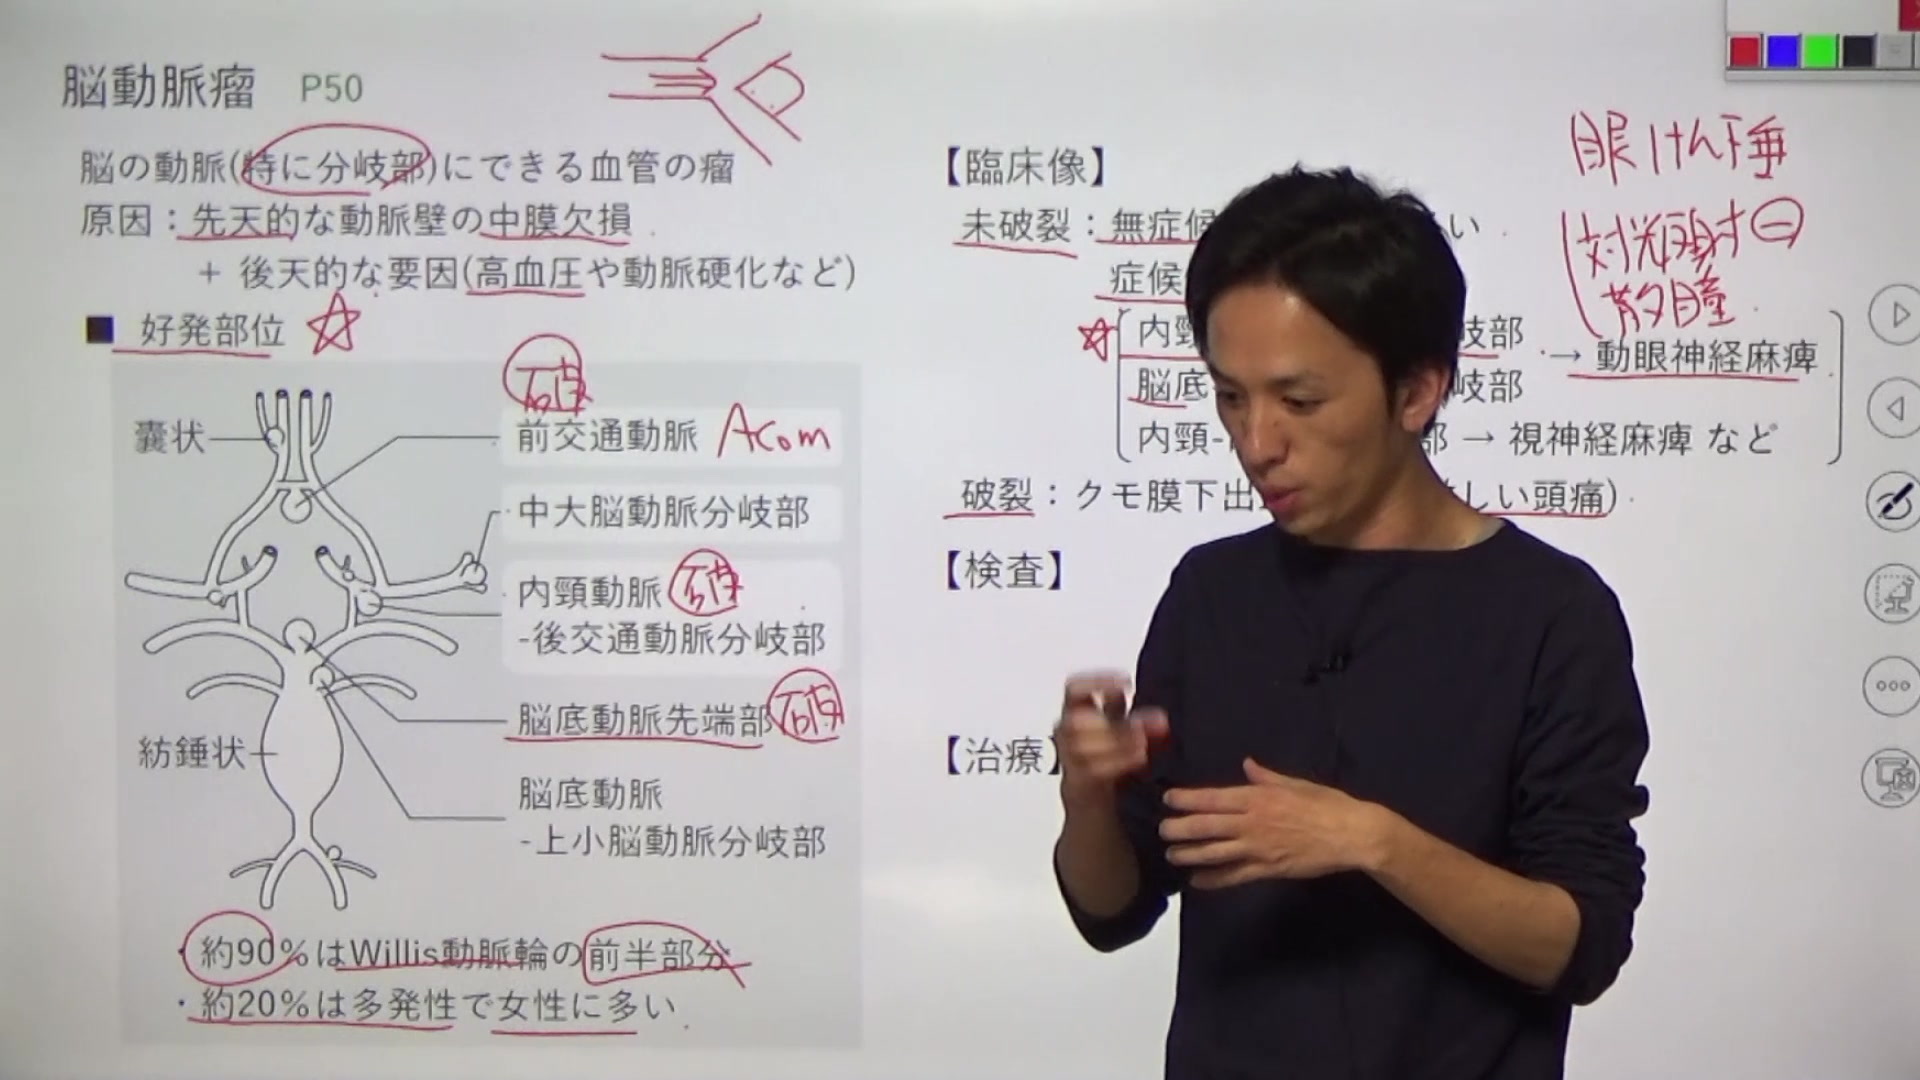 脳動脈瘤 P50
脳の動脈(特に分岐部)にできる血管の瘤
原因：先天的な動脈壁の中膜欠損
+ 後天的な要因(高血圧や動脈硬化など)
■ 好発部位 ☆
破
嚢状
前交通動脈 Acom
中大脳動脈分岐部
内頸動脈 破
-後交通動脈分岐部
脳底動脈先端部 破
紡錘状
脳底動脈
-上小脳動脈分岐部
・約90%はWillis動脈輪の前半部分
・約20%は多発性で女性に多い
【臨床像】
眼けん下垂
未破裂：無症候 い
対光反射⊖
症候
散瞳
☆ 内頸 岐部 → 動眼神経麻痺
脳底 岐部
内頸- 部 → 視神経麻痺 など
破裂：クモ膜下出 しい頭痛)
【検査】
【治療】